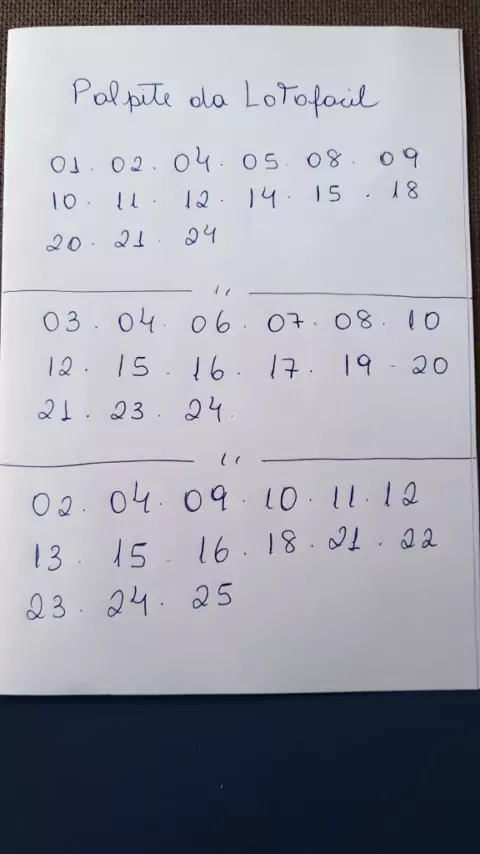 Palpite da Lotofacil
01. 02. 04. 05. 08. 09
10. 11. 12. 14. 15. 18
20. 21. 24
"
03. 04. 06. 07. 08. 10
12. 15. 16. 17. 19. 20
21. 23. 24.
"
02. 04. 09. 10. 11. 12
13. 15. 16. 18. 21. 22
23. 24. 25